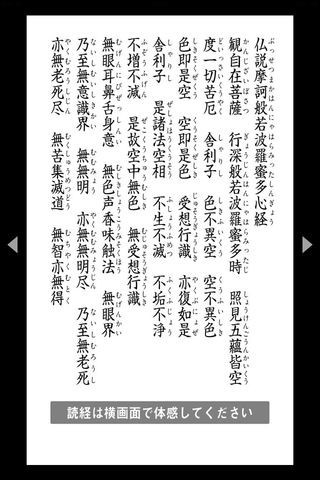 ぶっせつまかはんにゃはらみったしんぎょう
仏説摩訶般若波羅蜜多心経
かんじざいぼさつ ぎょうじんはんにゃはらみったじ しょうけんごうんかいくう
観自在菩薩 行深般若波羅蜜多時 照見五蘊皆空
どいっさいくやく しゃりし しきふいくう くうふいしき
度一切苦厄 舎利子 色不異空 空不異色
しきそくぜくう くうそくぜしき じゅそうぎょうしき やくぶにょぜ
色即是空 空即是色 受想行識 亦復如是
しゃりし ぜしょほうくうそう ふしょうふめつ ふくふじょう
舎利子 是諸法空相 不生不滅 不垢不浄
ふぞうふげん ぜこくうちゅうむしき むじゅそうぎょうしき
不増不減 是故空中無色 無受想行識
むげんにびぜっしんい むしきしょうこうみそくほう むげんかい
無眼耳鼻舌身意 無色声香味触法 無眼界
ないしむいしきかい むむみょう やくむむみょうじん ないしむろうし
乃至無意識界 無無明 亦無無明尽 乃至無老死
やくむろうしじん むくしゅうめつどう むちやくむとく
亦無老死尽 無苦集滅道 無智亦無得
読経は横画面で体感してください